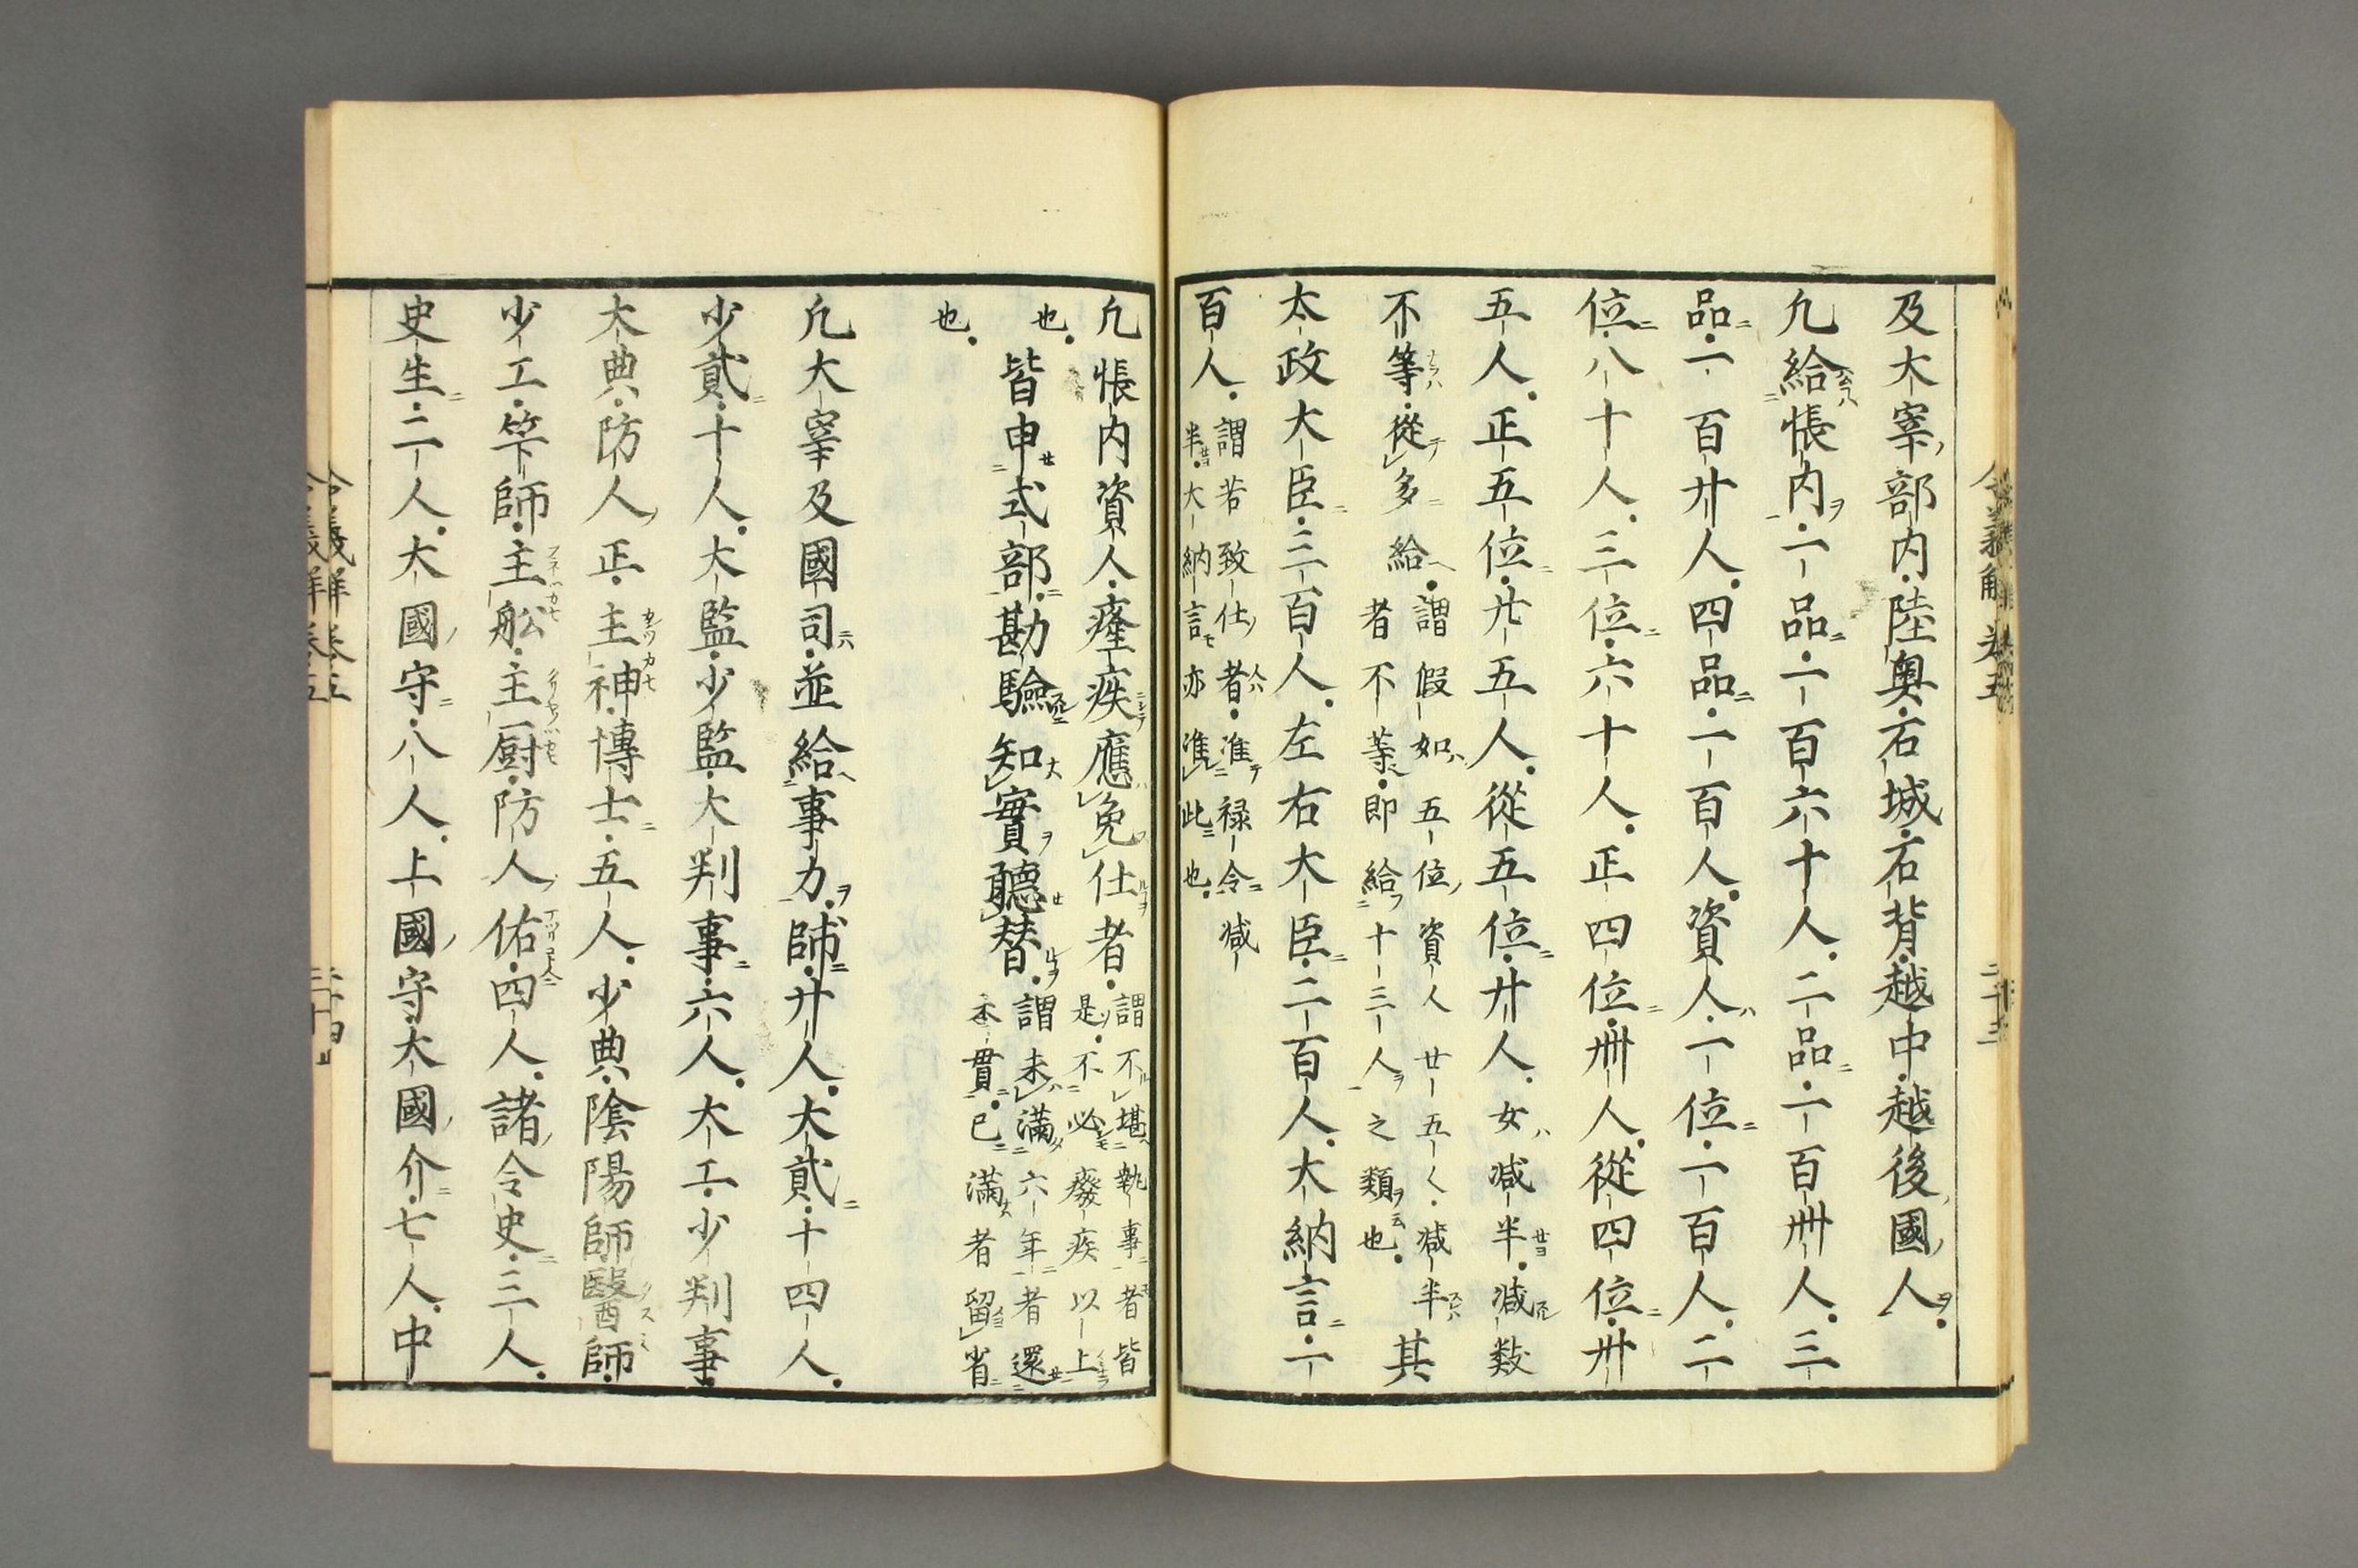 及大宰部内陸奥石城石背越中越後國人
凢給帳内一品一百六十人二品一百卌人三
品一百廾人四品一百人資人一位一百人二
位八十人三位六十人正四位卌人從四位卅
五人正五位廾五人從五位廾人女減半減數
不等從多給
謂假如五位資人廿五人減半
者不等即給十三人之類也
其
太政大臣三百人左右大臣二百人大納言一
百人
謂若致仕者准禄令減
半大納言亦准此也
凢帳内資人癃疾應免仕者
謂不堪執事者皆
是不必癈疾以上
也
皆申式部勘驗知實聽替
謂未滿六年者還
本貫已滿者留省
也
凢大宰及國司並給事力師廾人大貳十四人
少貳十人大監少監大判事六人大工少判事
大典防人正主神博士五人少典陰陽師醫師
少工筭師主舩主厨防人佑四人諸令史三人
史生二人大國守八人上國守大國介七人中